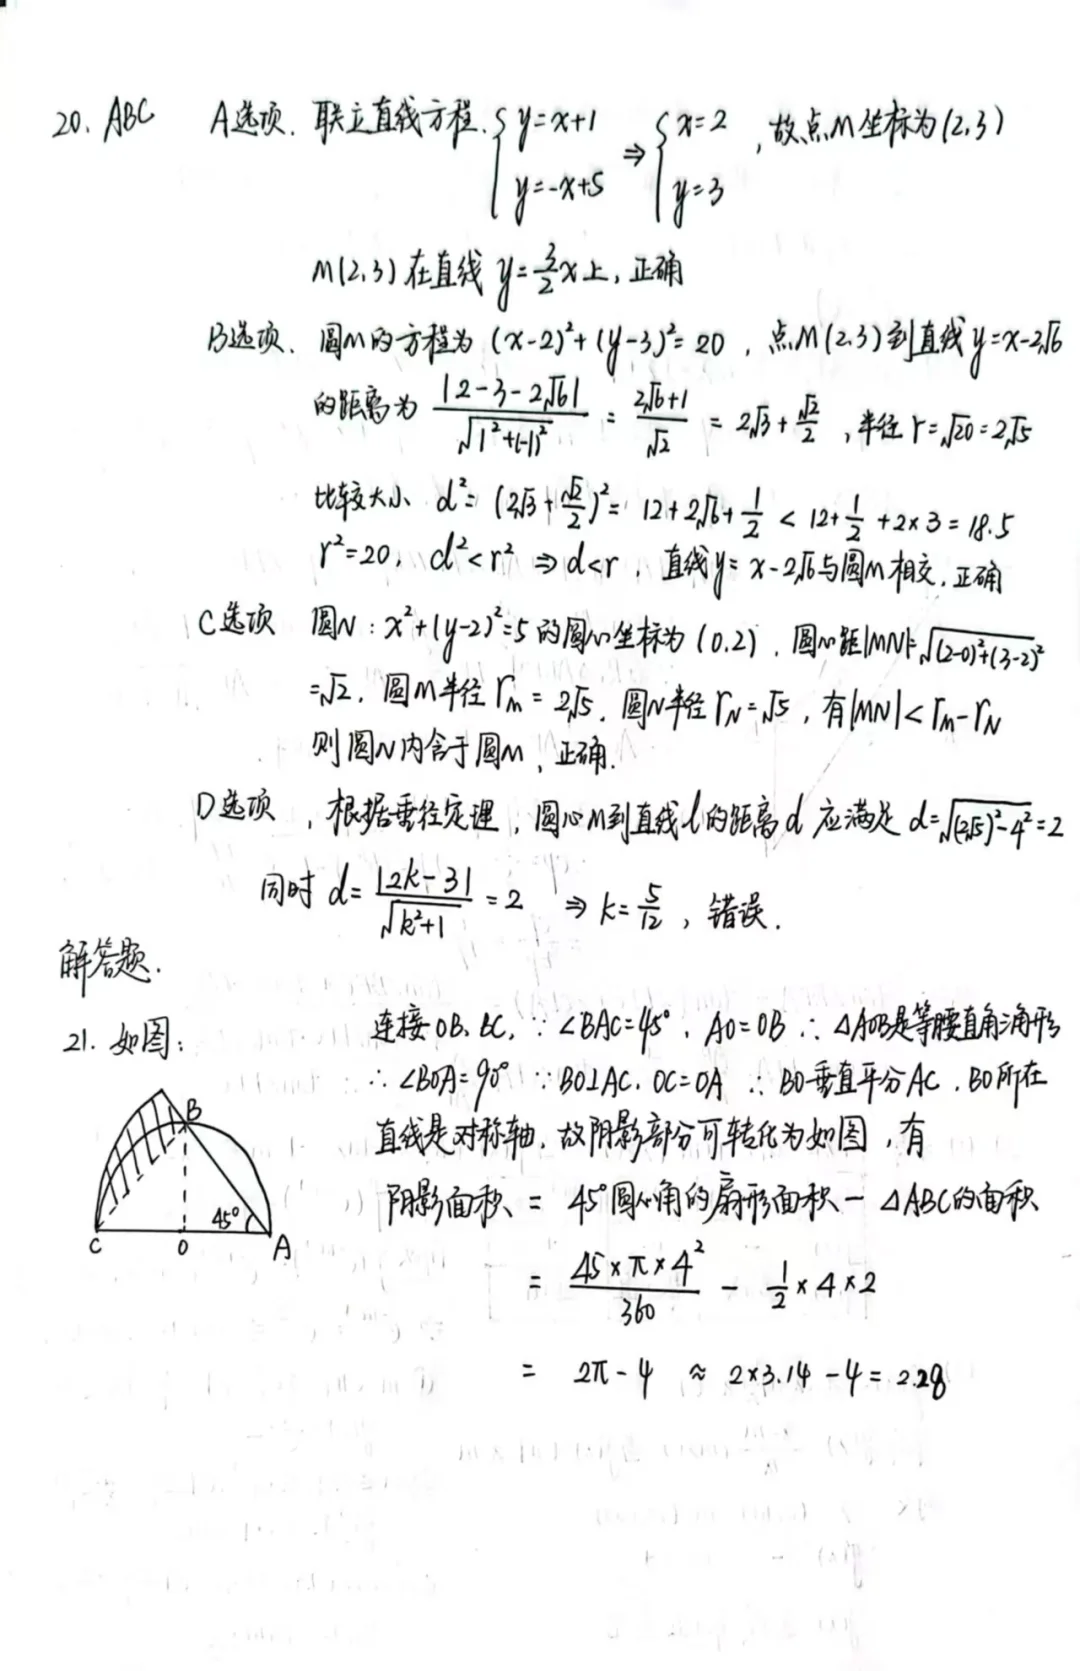 20. ABC A选项. 联立直线方程. { y=x+1 y=-x+5 ⇒ { x=2 y=3 , 故点M坐标为(2,3)
M(2,3)在直线 y=3/2x上, 正确
B选项. 圆M的方程为 (x-2)²+(y-3)²=20 , 点M(2,3)到直线y=x-2√6
的距离为 |2-3-2√6|/√(1²+(-1)²) = (2√6+1)/√2 = 2√3+√2/2 , 半径 r=√20=2√5
比较大小 d²=(2√3+√2/2)²= 12+2√6+1/2 < 12+1/2+2×3=18.5
r²=20, d²<r² ⇒ d<r , 直线y=x-2√6与圆M相交, 正确
C选项 圆N:x²+(y-2)²=5 的圆心坐标为 (0,2) , 圆心距|MN|=√((2-0)²+(3-2)²)
=√2, 圆M半径 rₘ=2√5, 圆N半径 r_N=√5 , 有|MN|<rₘ-r_N
则圆N内含于圆M, 正确.
D选项 , 根据垂径定理 , 圆心M到直线l的距离d 应满足 d=√((2√5)²-4²)=2
同时 d=|2k-3|/√(k²+1)=2 ⇒ k=5/12 , 错误.
解答题.
21. 如图: 连接OB、BC, ∵ ∠BAC=45°, AO=OB ∴ △AOB是等腰直角三角形
∴ ∠BOA=90° ∵ BO⊥AC, OC=OA ∴ BO垂直平分AC , BO所在
直线是对称轴, 故阴影部分可转化为如图 , 有
阴影面积 = 45°圆心角的扇形面积 - △ABC的面积
= (45×π×4²)/360 - 1/2×4×2
= 2π-4 ≈ 2×3.14-4=2.28
B
45°
C O A